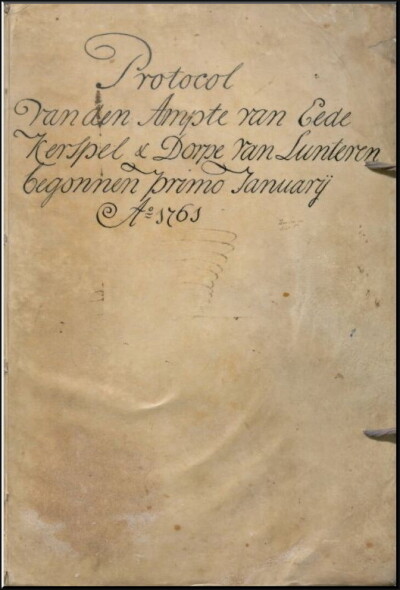 Protocol
van den Ampte van Eede
Kerspel & Dorpe van Lunteren
begonnen primo Januarij
Ao 1761